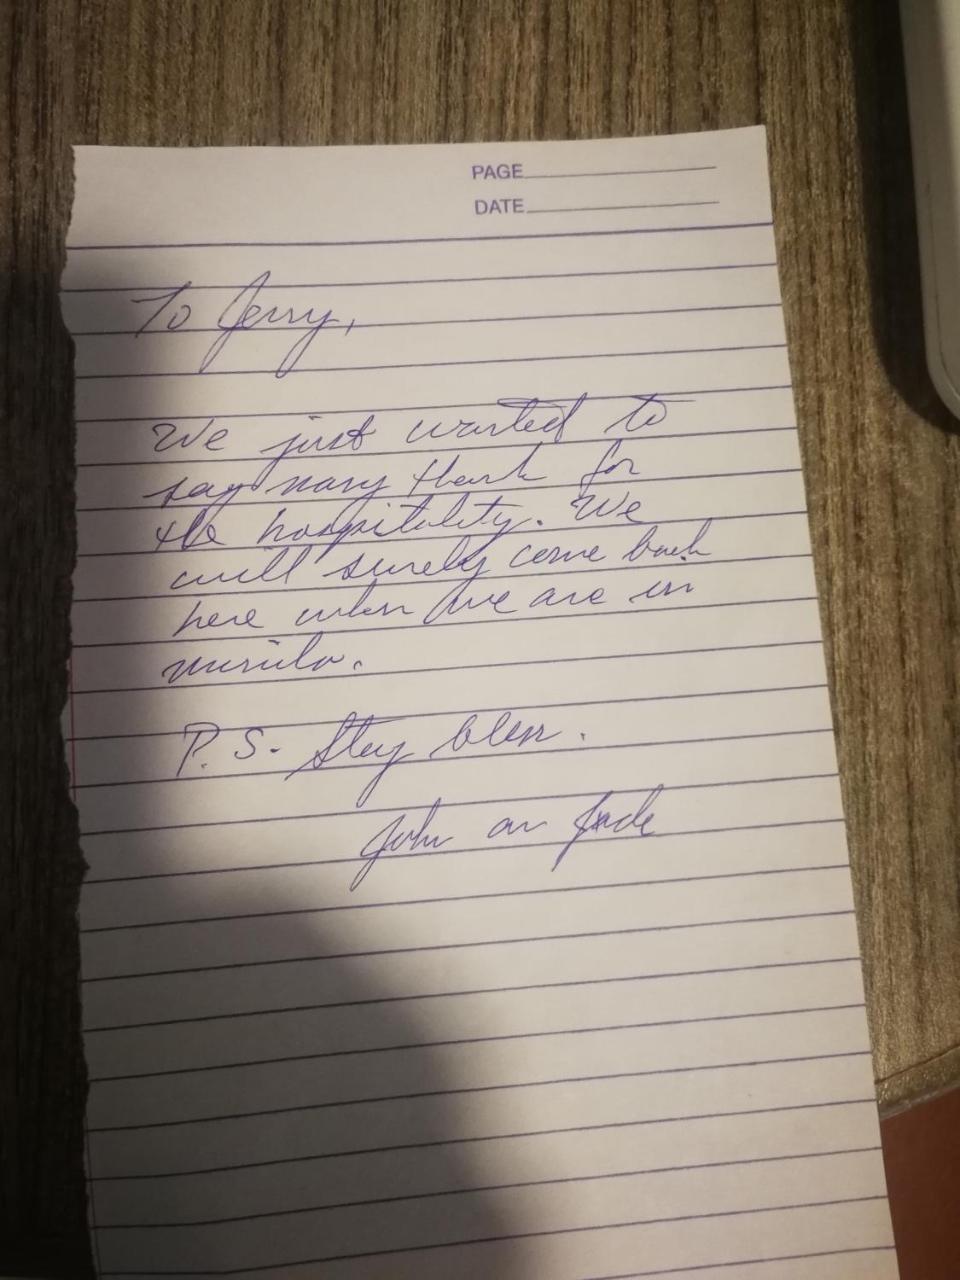 PAGE
DATE
To Jerry,
We just wanted to
say many thank for
the hospitality. We
will surely come back
here when we are in
manila.
P.S. Stay bless.
John an Jade